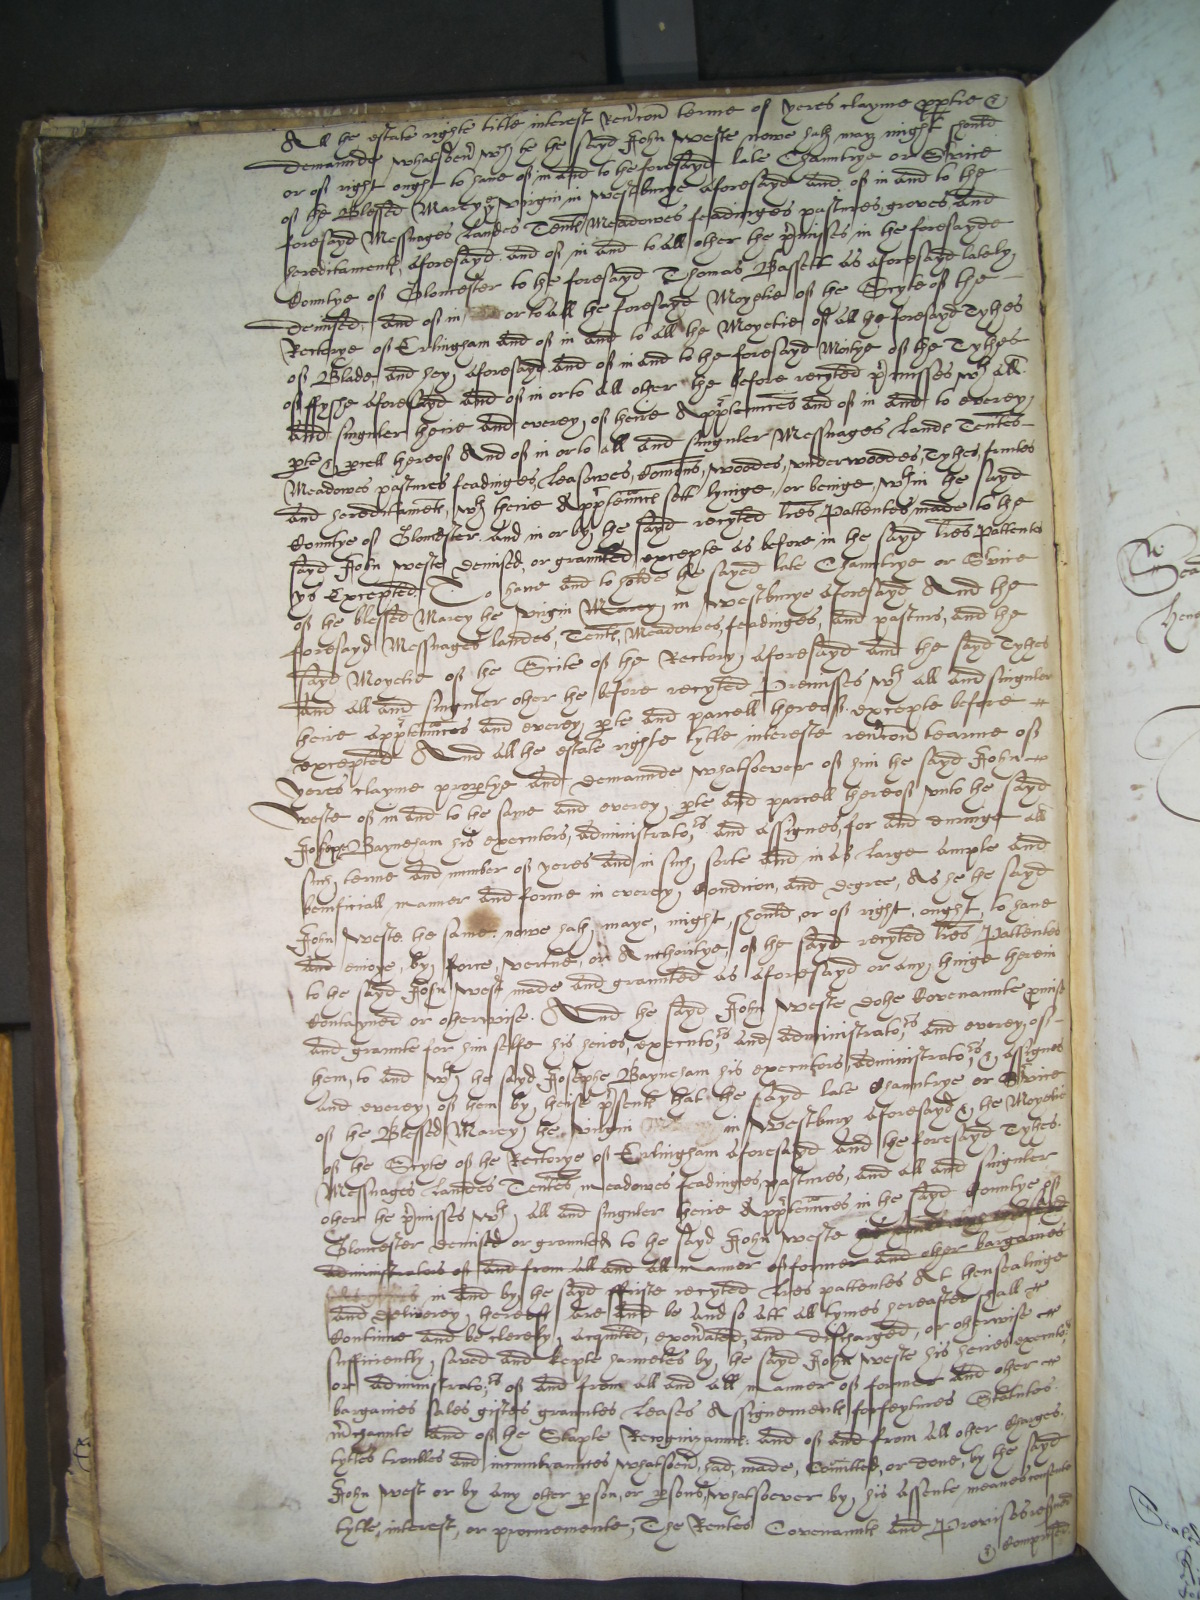 All he estate righte title interest Rev'con terme of yeres clayme pptie &
Demaunde whatsoev' wch he he sayd John Weste nowe hath may might should
or of right ought to have of in and to the foresayd late Chauntrye or S'vice
of the Blessed Marey ye virgin in Westburye aforesayd and of in and to the
foresayd Messuages Landes Tents Meadowes feadinges pastures groves and
hereditaments aforesayd and of in and to all other the p'misses in the foresayde
Countye of Gloucester to the foresayd Thomas Bassett as aforesayd lately
Demised, and of in or to all the foresayd Moyetie of the Scyte of the
Rectorye of Erlingham and of in and to all the Moyetie of all the foresayd Tythes
of Blade and hey aforesayd and of in and to the foresayd Moitye of the Tythes
of ffyshe aforesayd and of in or to all other the before recyted p'misses wth all
and singuler theire and everey of theire App'tennces and of in and to everey
pte & pcell thereof And of in or to all and singuler Messuages lands Tentes
Meadowes pastures feadinges, Leasowes, Comons, woodes, underwoodes, Tythes, fruites
and hereditaments, wth theire App'tennces sett lyinge, or beinge, wthin the sayd
Countye of Gloucester and in or by the sayd recyted lres Pattentes made to the
sayd John Weste demised, or graunted excepte as before in the sayd lres Pattents
ys Excepted To have and to holde the sayed late Chauntrye or S'vice
of the blessed Marey the virgin Marey in Westburye aforesayd And the
foresayd Messuages landes, Tents, Meadowes, feadinges, and pasturs, and the
sayd Moyetie of the Scite of the Rectory aforesayd and the sayd Tythes
and all and singuler other the before recyted Premisses wth all and singuler
theire app'tennces and everey pte and parcell thereof excepte before
excepted And all the estate righte tytle intereste rev'con tearme of
yeres clayme propertye and demaunde whatsoever of him the sayd John
Weste of in and to the same and everey pte and parcell thereof unto the sayd
Josephe Bayneham his executors, administrators and assignes, for and duringe all
such terme and number of yeres and in such sorte and in as large ample and
benificiall manner and forme in everey Condicion, and degree, As he the sayd
John Weste the same nowe hath, maye, might, should, or of right, ought, to have
and enioye, by force, vertue, or Authoritye, of the sayd recyted lres Pattentes
to the sayd John West made and graunted as aforesayd or any thinge therein
Contayned or otherwise. And the sayd John Weste dothe Covenaunte pmise
and graunte for him selfe his heires, executors and administrators and everey of
them, to and wth the sayd Josephe Bayneham his executors, administrators & assignes
and everey of them by theise p'sents that the sayd late Chauntrye or S'vice
of the Blessed Marey the virgin in Westbury aforesayd & the Moyetie
of the Scyte of the Rectorye of Erlingham aforesayd and the foresayd Tythes
Messuages landes Tentes meadowes feadinges, pastures, and all and singuler
other the p'misses wth all and singuler theire App'tennces in the sayd Countye of
Gloucester demised or graunted to the sayd John Weste
administrators of and from all and all manner of former and other bargaines
in and by the sayd ffirste recyted lres pattentes At thensealinge
and deliverey hereoff are and be and so att all tymes hereafter shall
Continue and be clerely acquited, exon'ated, and discharged, or otherwise
sufficiently saved and kepte harmeles by the sayd John Weste his heires executors
or administrators of and from all and all manner of former and other
bargaines sales giftes grauntes Leases Assignements forfeytures Statutes
m'chaunte and of the Staple Recognizaunce. and of and from all other charges
tytles troubles and incumbraunces whatsoev', had, made, Comitted, or done, by the sayd
John West or by any other pson, or psons, whatsoever by his assente, meanes consente
tytle, interest, or procuremente, The Rentes Covenaunts and Provises
& Comprised